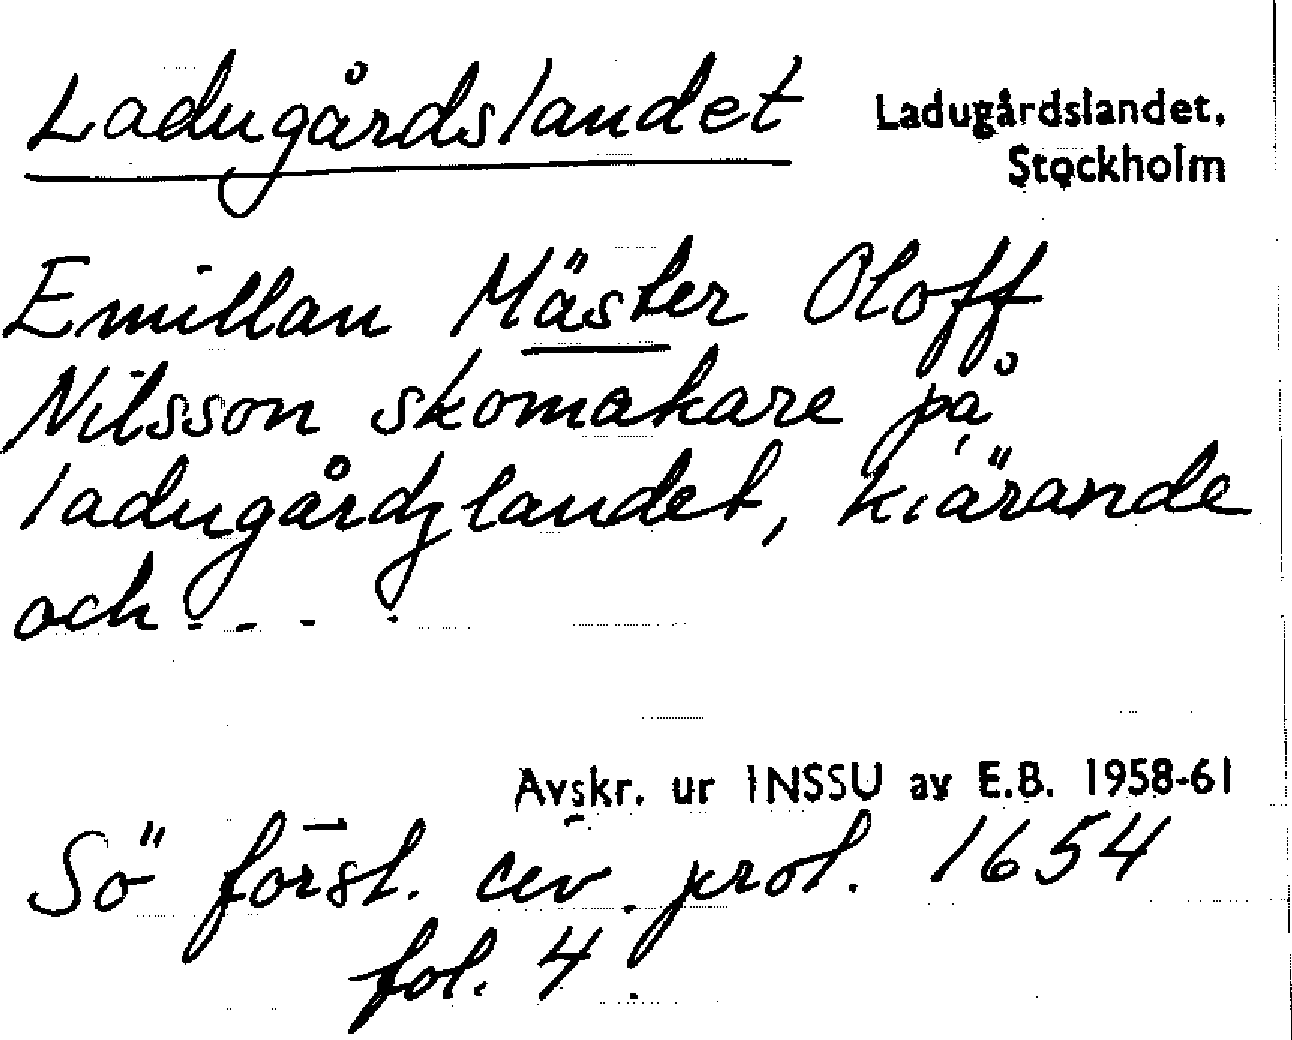 Ladugårdslandet
Ladugårdslandet,
Stockholm
Emillan Mäster Oloff
Nilsson skomakare på
ladugårdzlandet, kiärande
och - - - -
Avskr. ur INSSU av E.B. 1958-61
Sö först. civ. prot. 1654
fol. 4.